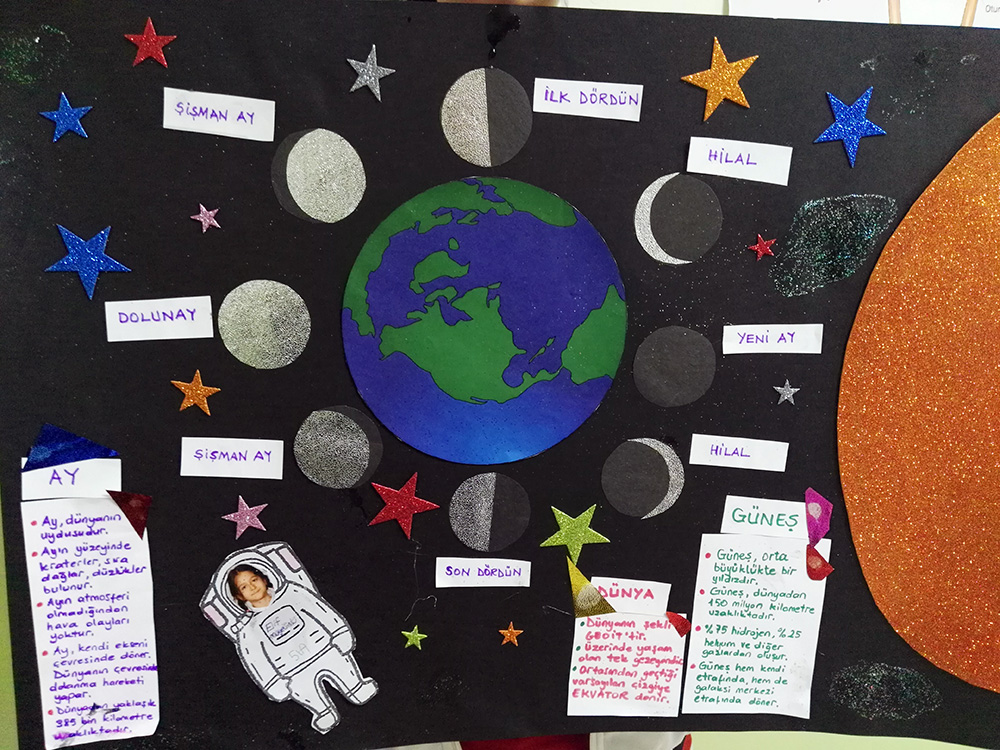 Otur
ŞİŞMAN AY
İLK DÖRDÜN
HİLAL
DOLUNAY
YENİ AY
ŞİŞMAN AY
HİLAL
SON DÖRDÜN
AY
Ay, dünyanın
uydusudur.
Ayın yüzeyinde
kraterler, sıra
dağlar, düzlükler
bulunur.
Ayın atmosferi
olmadığından
hava olayları
yoktur.
Ay, kendi ekseni
çevresinde döner.
Dünyanın çevresinde
dolanma hareketi
yapar.
Dünyaya yaklaşık
385 bin kilometre
uzaklıktadır.
Elif
DÜNYA
Dünyanın şekli
GEOİT'tir.
Üzerinde yaşam
olan tek gezegendir.
Ortasından geçtiği
varsayılan çizgiye
EKVATOR denir.
GÜNEŞ
Güneş, orta
büyüklükte bir
yıldızdır.
Güneş, dünyadan
150 milyon kilometre
uzaklıktadır.
%75 hidrojen, %25
helyum ve diğer
gazlardan oluşur.
Güneş hem kendi
etrafında, hem de
galaksi merkezi
etrafında döner.